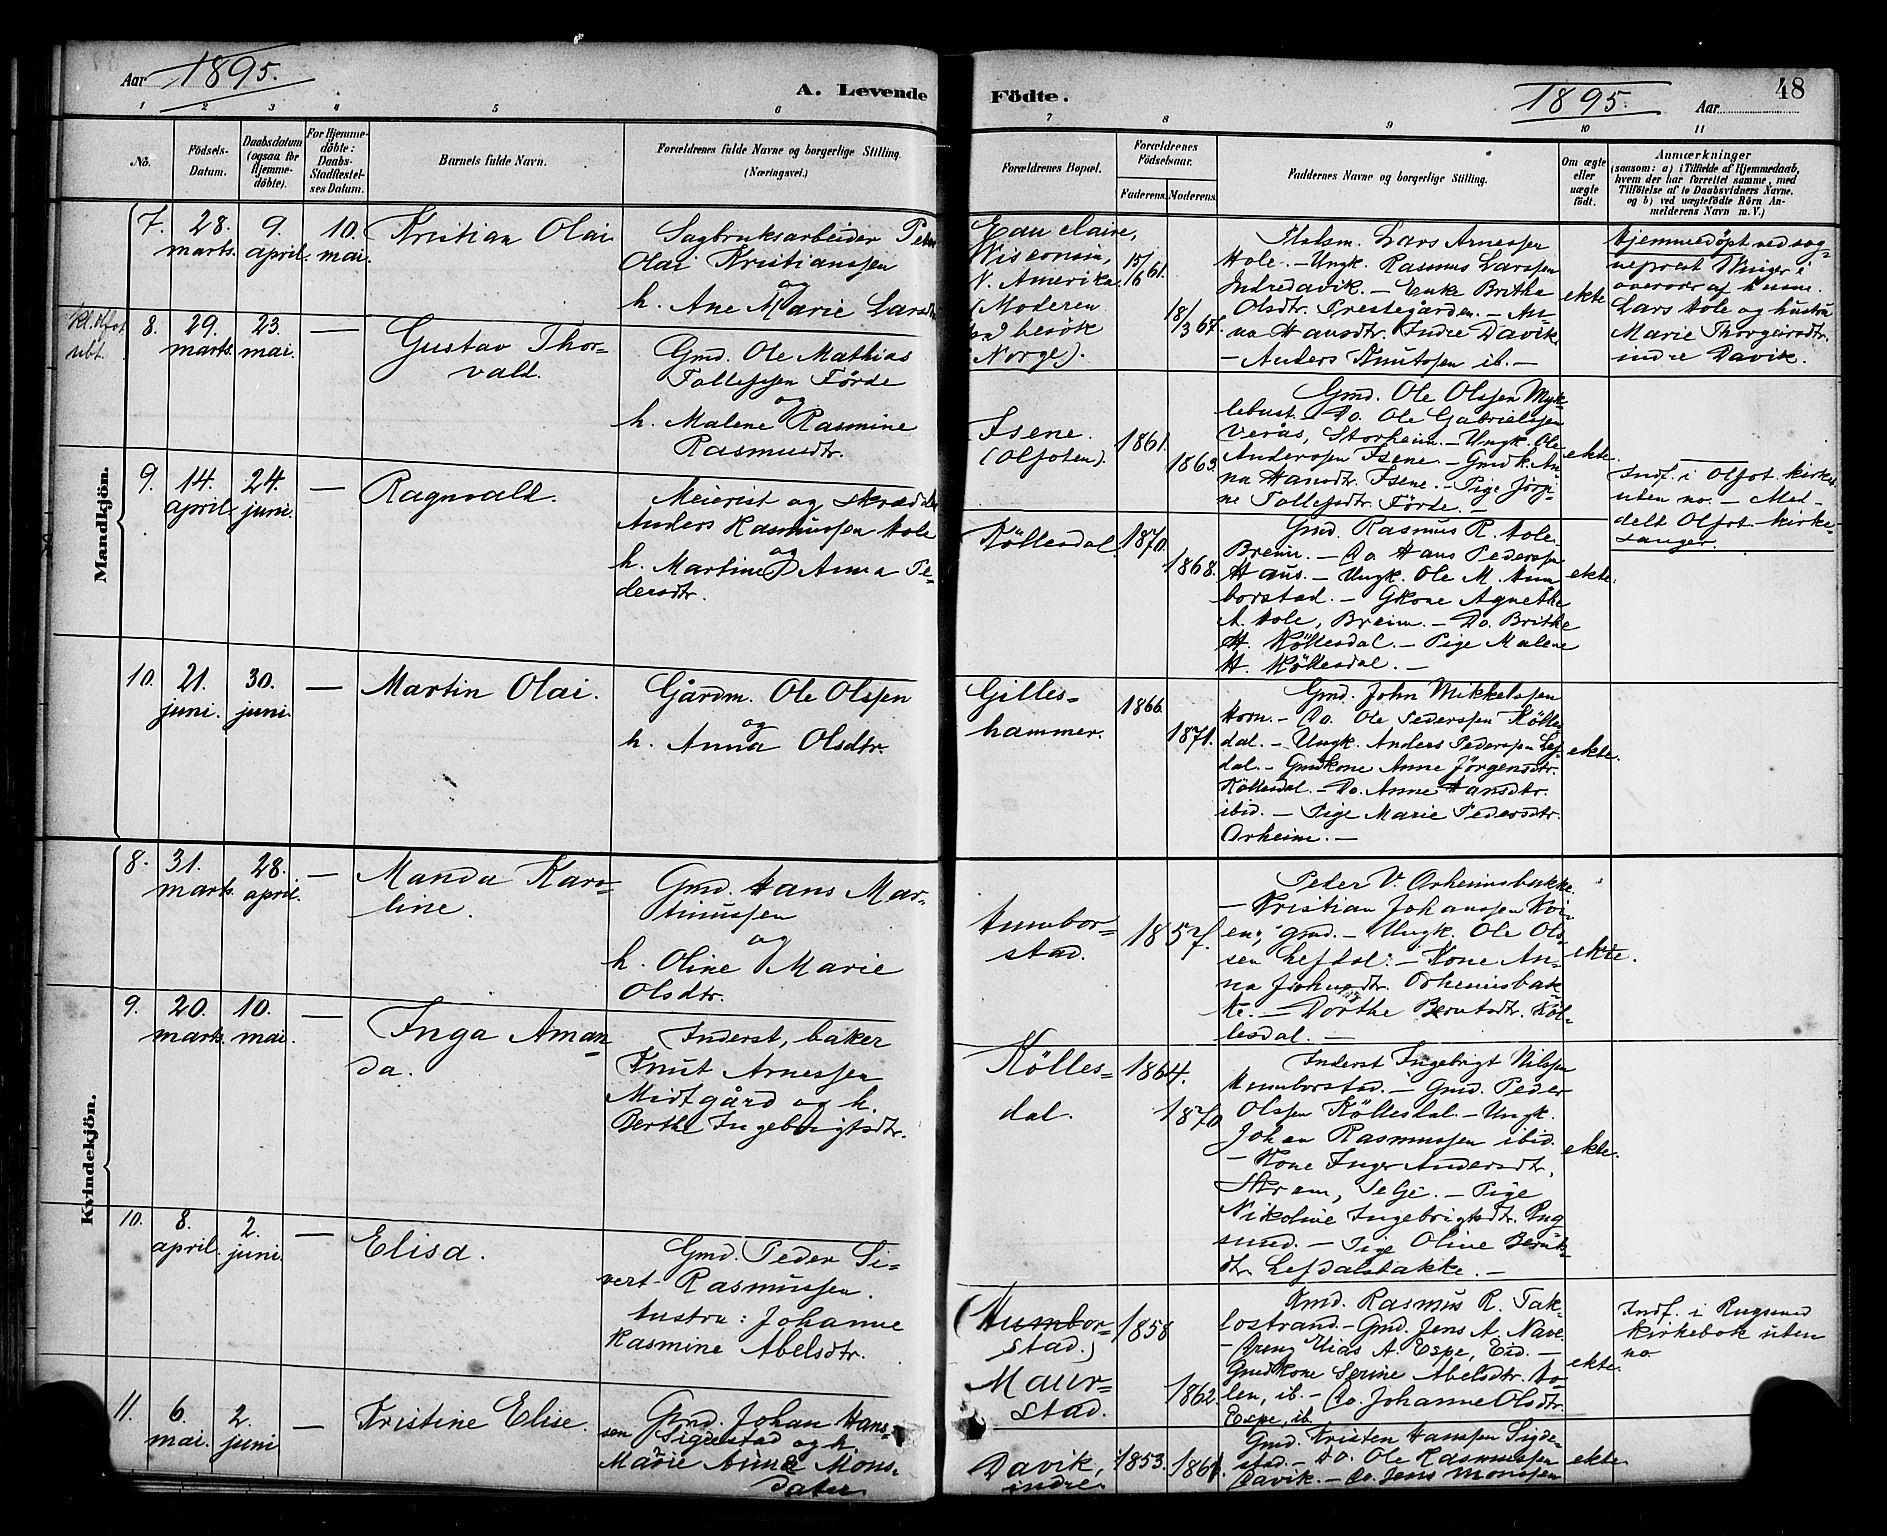 Aar 1895.
A. Levende
Födte.
1895. Aar
48
1 2 3 4 5 6
7 8 9 10 11
No.
Födsels-
Datum.
Daabsdatum
(ogsaa for
Hjemme-
döbte).
For Hjemme-
döbte:
Daabs-
Stadfæstel-
ses Datum.
Barnets fulde Navn.
Forældrenes fulde Navne og borgerlige Stilling.
(Næringsvei.)
Forældrenes Bopæl.
Forældrenes
Födselsaar.
Faderens. Moderens.
Faddernes Navne og borgerlige Stilling.
Om ægte
eller
uægte
födt.
Anmærkninger
(saasom: a) i Tilfælde af Hjemmedaab,
hvem der har forrettet samme, med
Tilföielse af to Daabsvidners Navne,
og b) ved uægtefödte Börn An-
melderens Navn m. V.)
Mandkjön.
7. 28. marts. 9. april. 10. mai.
Kristian Olai
Sagbruksarbeider Peder
Olai Kristianssen
og
h. Ane Marie Larsdtr.
Eau claire,
Wisconsin,
N. Amerika.
(Moderen
på besök
Norge).
15/6 61.
18/3 67.
Lars Arnessen
Hole. - Ungk. Rasmus Larssen
Indredavik. - Enke Brithe
Olsdtr. Prestegården. - An-
na Hansdtr. Indre Davik
- Anders Knutssen ib. -
ekte
Hjemmedöpt ved sog-
neprest Winger i
overvær af husm.
Lars Hole og hustru
Marie Thorgeirsdtr.
indre Davik.
8. 29. marts. 23. mai. —
Gustav Thor-
vald.
Gmd. Ole Mathias
Tollefssen Förde
og
h. Malene Rasmine
Rasmusdtr.
Isene.
(Olfoten).
1861.
1863.
Gmd. Ole Olssen Myk-
lebust. - Do. Ole Gabrielssen
Verås, Storheim. - Ungk. Ole
Anderssen Isene. - Gmdk. An-
na Hansdtr. Isene. - Pige Jörgi-
ne Tollefsdtr. Förde. -
ekte.
Indf. i Olfot. kirkeb.
uten no. - Med-
delt Olfot. kirke-
sanger.
9. 14. april. 24. juni. —
Ragnvald.
Meierist og skrædder
Anders Rasmussen Hole
og
h. Martine Anna Pe-
dersdtr.
Köllesdal
1870.
1868.
Gmd. Rasmus R. Hole
Breim. - Do. Hans Pederssen
Haus. - Ungk. Ole M. Hum
borstad. - Gkone Agnethe
A. Hole, Breim. - Do. Brithe
H. Köllesdal. - Pige Malene
H. Köllesdal. -
ekte.
10. 21. juni. 30. juni. —
Martin Olai.
Gårdm. Ole Olssen
og
h. Anna Olsdtr.
Gilles-
hammer.
1866.
1871.
Gmd. John Mikkelssen
Horn. - Do. Ole Pederssen Kölles
dal. - Ungk. Anders Pederssen Lef-
dal. - Gmdkone Anne Jörgensdtr.
Köllesdal. - Do. Anne Hansdtr.
ibid. - Pige Marie Pedersdtr.
Orheim. -
ekte.
Kvindekjön.
8. 31. marts. 28. april. —
Manda Karo-
line.
Gmd. Hans Mar-
tinussen
og
h. Oline Marie
Olsdtr.
Humbor-
stad.
1857.
Peder V. Orheimsbakke.
- Kristian Johanssen Kvi-
en, gmd. - Ungk. Ole Ols-
sen Lefdal. - Kone An-
na Johnsdtr. Orheimsbak
ke. - Dorthe Berntsdtr. Köl-
lesdal. -
ekte.
9. 20. marts. 10. mai. —
Inga Aman-
da.
Inderst, baker
Knut Arnessen
Midtgård og h.
Berthe Ingebrigtsdtr.
Kölles-
dal.
1864.
1870
Inderst Ingebrigt Nilssen
Humborstad. - Gmd. Peder
Olssen Köllesdal. - Ungk.
Johan Rasmussen ibid.
- Kone Inger Andersdtr.
Skram, Selje. - Pige
Nikoline Ingebrigtsdtr. Rug
sund. - Pige Oline Bernts-
dtr. Lefdalsbakke. -
ekte.
10. 8. april. 2. juni. —
Elisa.
Gmd. Peder Si-
vert Rasmussen.
Hustru: Johanne
Rasmine Abelsdtr.
(Humbor-
stad.)
Maur-
stad.
1858
1862.
Gmd. Rasmus R. Tak-
lostrand. - Gmd. Jens A. Nave
- Dreng Elias A. Espe, Eid. -
Gmdkone Serine Abelsdtr. Ho-
len, ib. - Do. Johanne Olsdtr.
Espe, ib.
ekte.
Indf. i Rugsund
kirkebok uten
no.
11. 6. mai. 2. juni —
Kristine Elise.
Gmd. Johan Hans-
sen Sigdestad og h.
Marie Anne Mons-
dater.
Davik,
indre.
1853.
1861.
Gmd. Kristen Hanssen Sigde-
stad. - Do. Ole Rasmussen
Davik. - Do. Jens Monssen
ekte